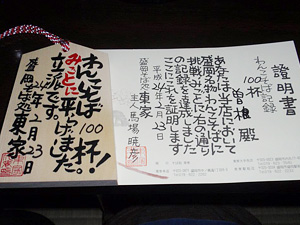 わんこそば
100杯!
みごとに
平らげました。
立派です。
24年2月23日
盛岡そば処
東家
證明書
わんこそば記録
100杯
曽根 殿
あなたは当店において
盛岡名物わんこそばに
挑戦みごとに右の通り
の記録を達成しました
ここにこれを証明します
平成24年2月23日
盛岡そば処 東家
主人 馬場暁彦